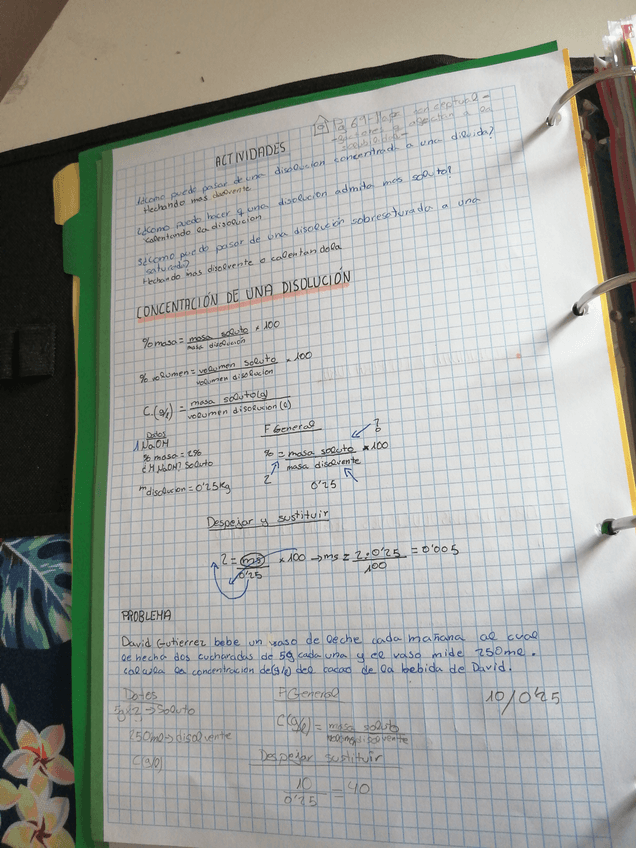 ACTIVIDADES
1¿Como puede pasar de una disolucion concentrada a una diluida?
Hechando mas disolvente
2¿Como puedo hacer q una disolucion admita mas soluto?
calentando la disolucion
3¿Como puedo pasar de una disolución sobresaturada a una
saturada?
Hechando mas disolvente o calentandola
CONCENTACIÓN DE UNA DISOLUCIÓN
% masa = masa soluto / masa disolucion × 100
% volumen = volumen soluto / volumen disolucion × 100
C.(g/l) = masa soluto(g) / volumen disolucion (l)
Datos
1 NaOH
% masa = 2%
¿M NaOH? Soluto
m disolucion = 0'25 Kg
F General
?
% = masa soluto / masa disolvente × 100
2
0'25
Despejar y sustituir
2 = ms / 0'25 × 100 → ms = 2·0'25 / 100 = 0'005
PROBLEMA
David Gutierrez bebe un vaso de leche cada mañana al cual
le hecha dos cucharadas de 5g cada una y el vaso mide 250ml.
calcula la concentración de(g/l) del cacao de la bebida de David.
Datos
5g×2 → Soluto
250ml → disolvente
C(g/l)
F General
C(g/l) = masa soluto / volumen disolvente
10/0'25
Despejar sustituir
10 / 0'25 = 40